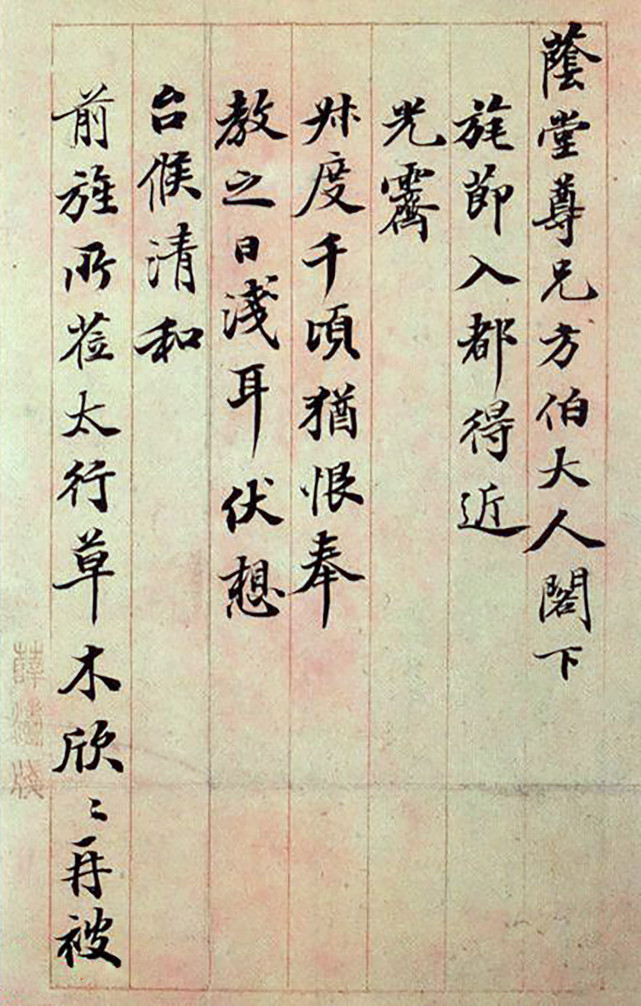 蔭堂尊兄方伯大人閣下
旄節入都得近
光霽
叔度千頃猶恨奉
教之日淺耳伏想
台候清和
前旌所莅太行草木欣〻再被
薛濤牋